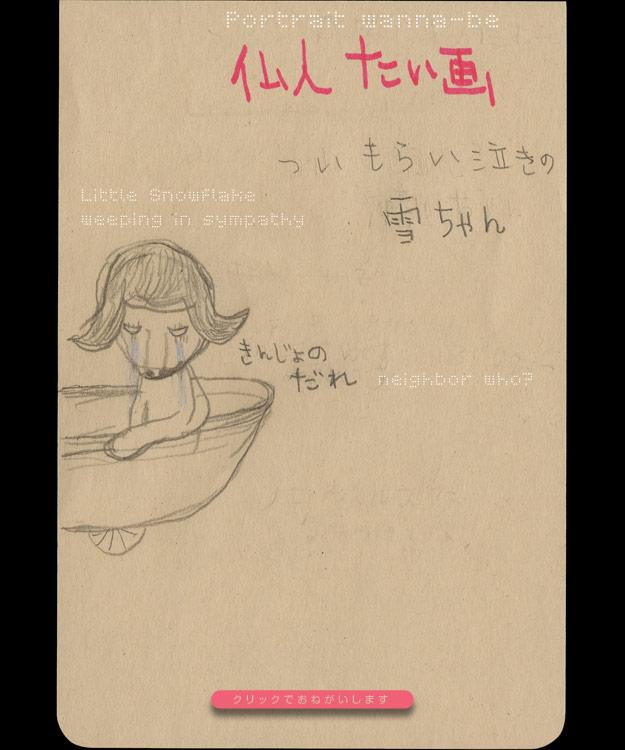 Portrait wanna-be
仏人たい画
ついもらい泣きの
雪ちゃん
Little Snowflake
weeping in sympathy
きんじょの
だれ
neighbor who?
クリックでおねがいします